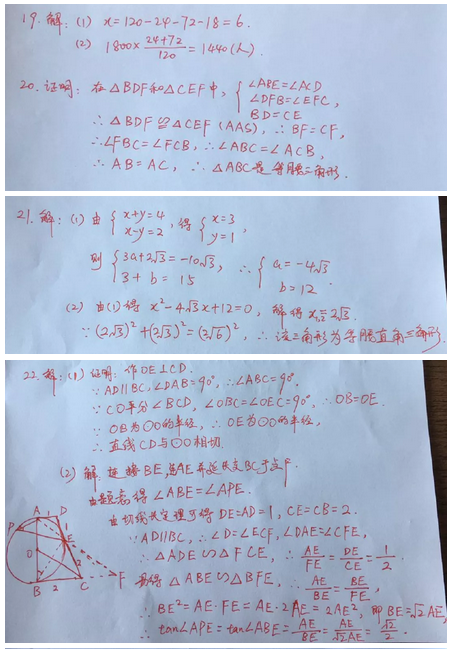 19.解：(1) x=120-24-72-18=6.
(2) 1800×(24+72)/120=1440(人).
20.证明：在△BDF和△CEF中，{∠ABE=∠ACD
∠DFB=∠EFC，
BD=CE
∴△BDF≌△CEF(AAS)，∴BF=CF，
∴∠FBC=∠FCB，∴∠ABC=∠ACB，
∴AB=AC，∴△ABC是等腰三角形.
21.解：(1)由{x+y=4 x-y=2，得{x=3 y=1，
则{3a+2√3=-10√3，3+b=15 ∴{a=-4√3 b=12.
(2)由(1)得 x²-4√3x+12=0，解得x₁,₂=2√3.
∵(2√3)²+(2√3)²=(2√6)²，∴该三角形为等腰直角三角形.
22.解：(1)证明：作OE⊥CD.
∵AD∥BC，∠DAB=90°，∴∠ABC=90°.
∵CO平分∠BCD，∠OBC=∠OEC=90°，∴OB=OE.
∵OB为⊙O的半径，∴OE为⊙O的半径，
∴直线CD与⊙O相切.
(2)解：连接BE，延AE并延长交BC于点F.
由题意得∠ABE=∠APE.
由切线长定理可得DE=AD=1，CE=CB=2.
∵AD∥BC，∴∠D=∠ECF，∠DAE=∠CFE，
∴△ADE∽△FCE，∴AE/FE=DE/CE=1/2.
易得△ABE∽△BFE，∴AE/BE=BE/FE，
∴BE²=AE·FE=AE·2AE=2AE²，即BE=√2AE，
∴tan∠APE=tan∠ABE=AE/BE=AE/√2AE=√2/2.
A 1 D
P
1
E
O
2
B 2 C F